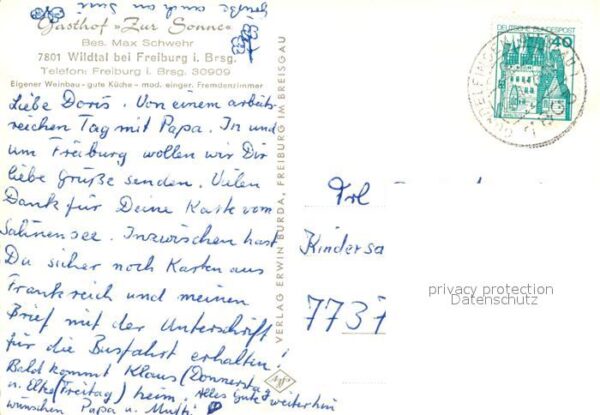 Grüße auch an
Gasthof »Zur Sonne«
Bes. Max Schwehr
7801 Wildtal bei Freiburg i. Brsg.
Telefon: Freiburg i. Brsg. 30909
Eigener Weinbau - gute Küche - mod. einger. Fremdenzimmer
Liebe Doris. Von einem arbeits
reichen Tag mit Papa. In und
um Freiburg wollen wir Dir
liebe Grüße senden. Vielen
Dank für Deine Karte vom
Salinensee. Inzwischen hast
Du sicher noch Karten aus
Frankreich und meinen
Brief mit der Unterschrift
für die Busfahrt erhalten!
Bald kommt Klaus (Donnerstag
u. Elke (Freitag) heim. Alles Gute weiterhin
wünschen Papa u. Mutti.
VERLAG ERWIN BURDA, FREIBURG IM BREISGAU
DEUTSCHE BUNDESPOST
40
Frl
Kindersa
7737
privacy protection
Datenschutz